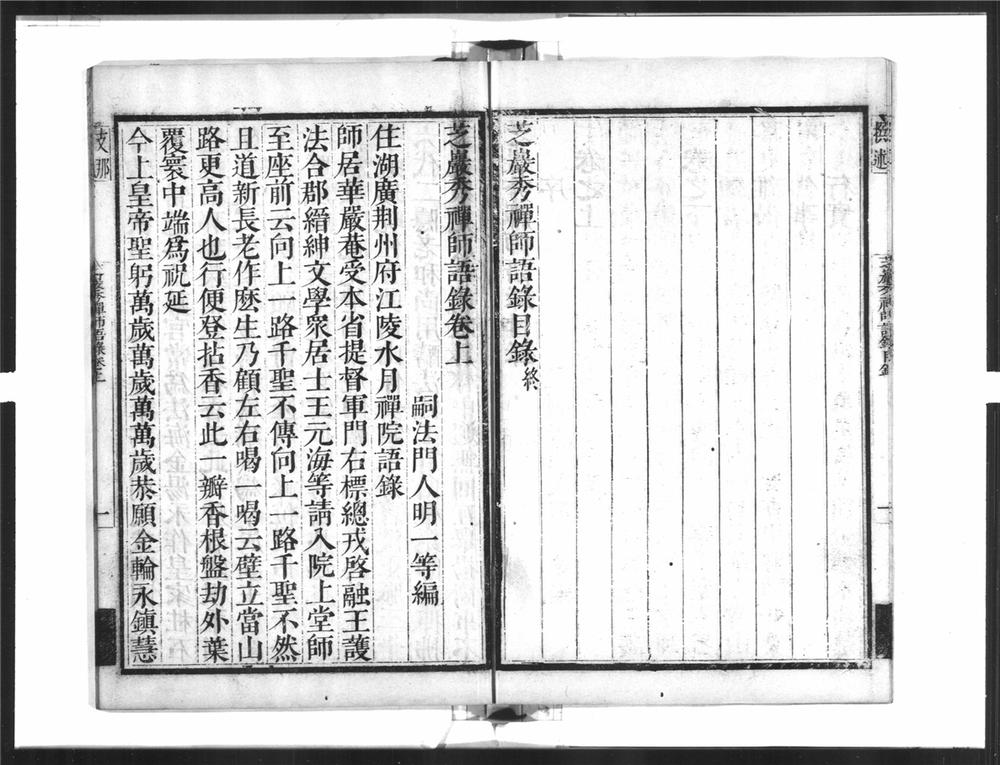 撰述
芝巖秀禪師語錄目錄
一
芝巖秀禪師語錄目錄終
芝巖秀禪師語錄卷上
嗣法門人明一等編
住湖廣荆州府江陵水月禪院語錄
師居華嚴菴受本省提督軍門右標總戎啓融王護
法合郡縉紳文學眾居士王元海等請入院上堂師
至座前云向上一路千聖不傳向上一路千聖不然
且道新長老作麽生乃顧左右喝一喝云壁立當山
路更高人也行便登拈香云此一瓣香根盤劫外葉
覆寰中端爲祝延
今上皇帝聖躬萬歲萬歲萬萬歲恭願金輪永鎮慧
支那
芝巖秀禪師語錄卷上
一